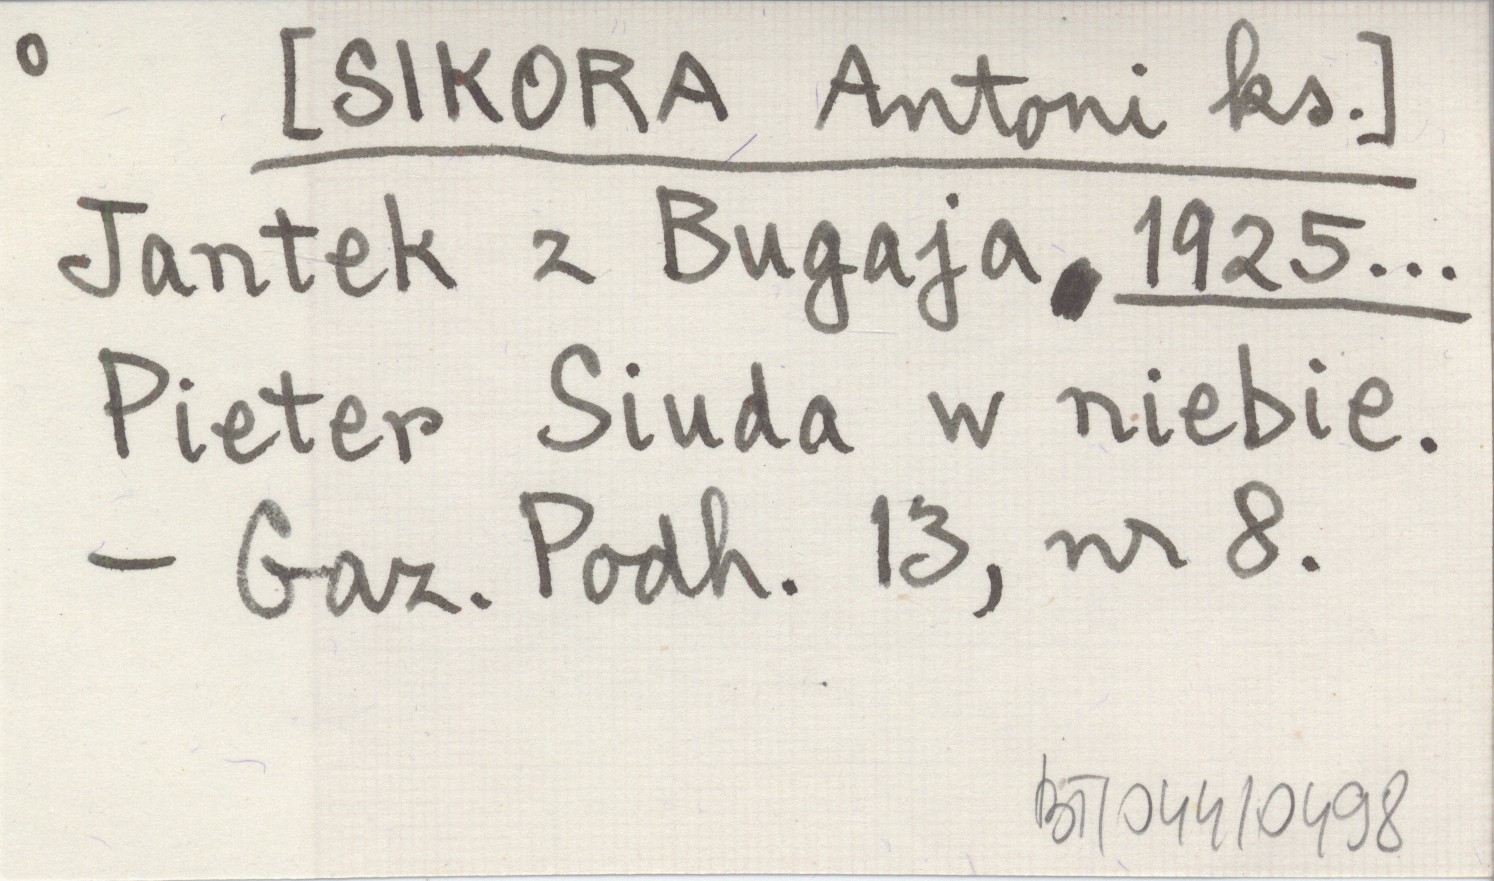 o [SIKORA Antoni ks.]
Jantek z Bugaja, 1925...
Pieter Siuda w niebie.
– Gaz. Podh. 13, nr 8.
BT/044/0498